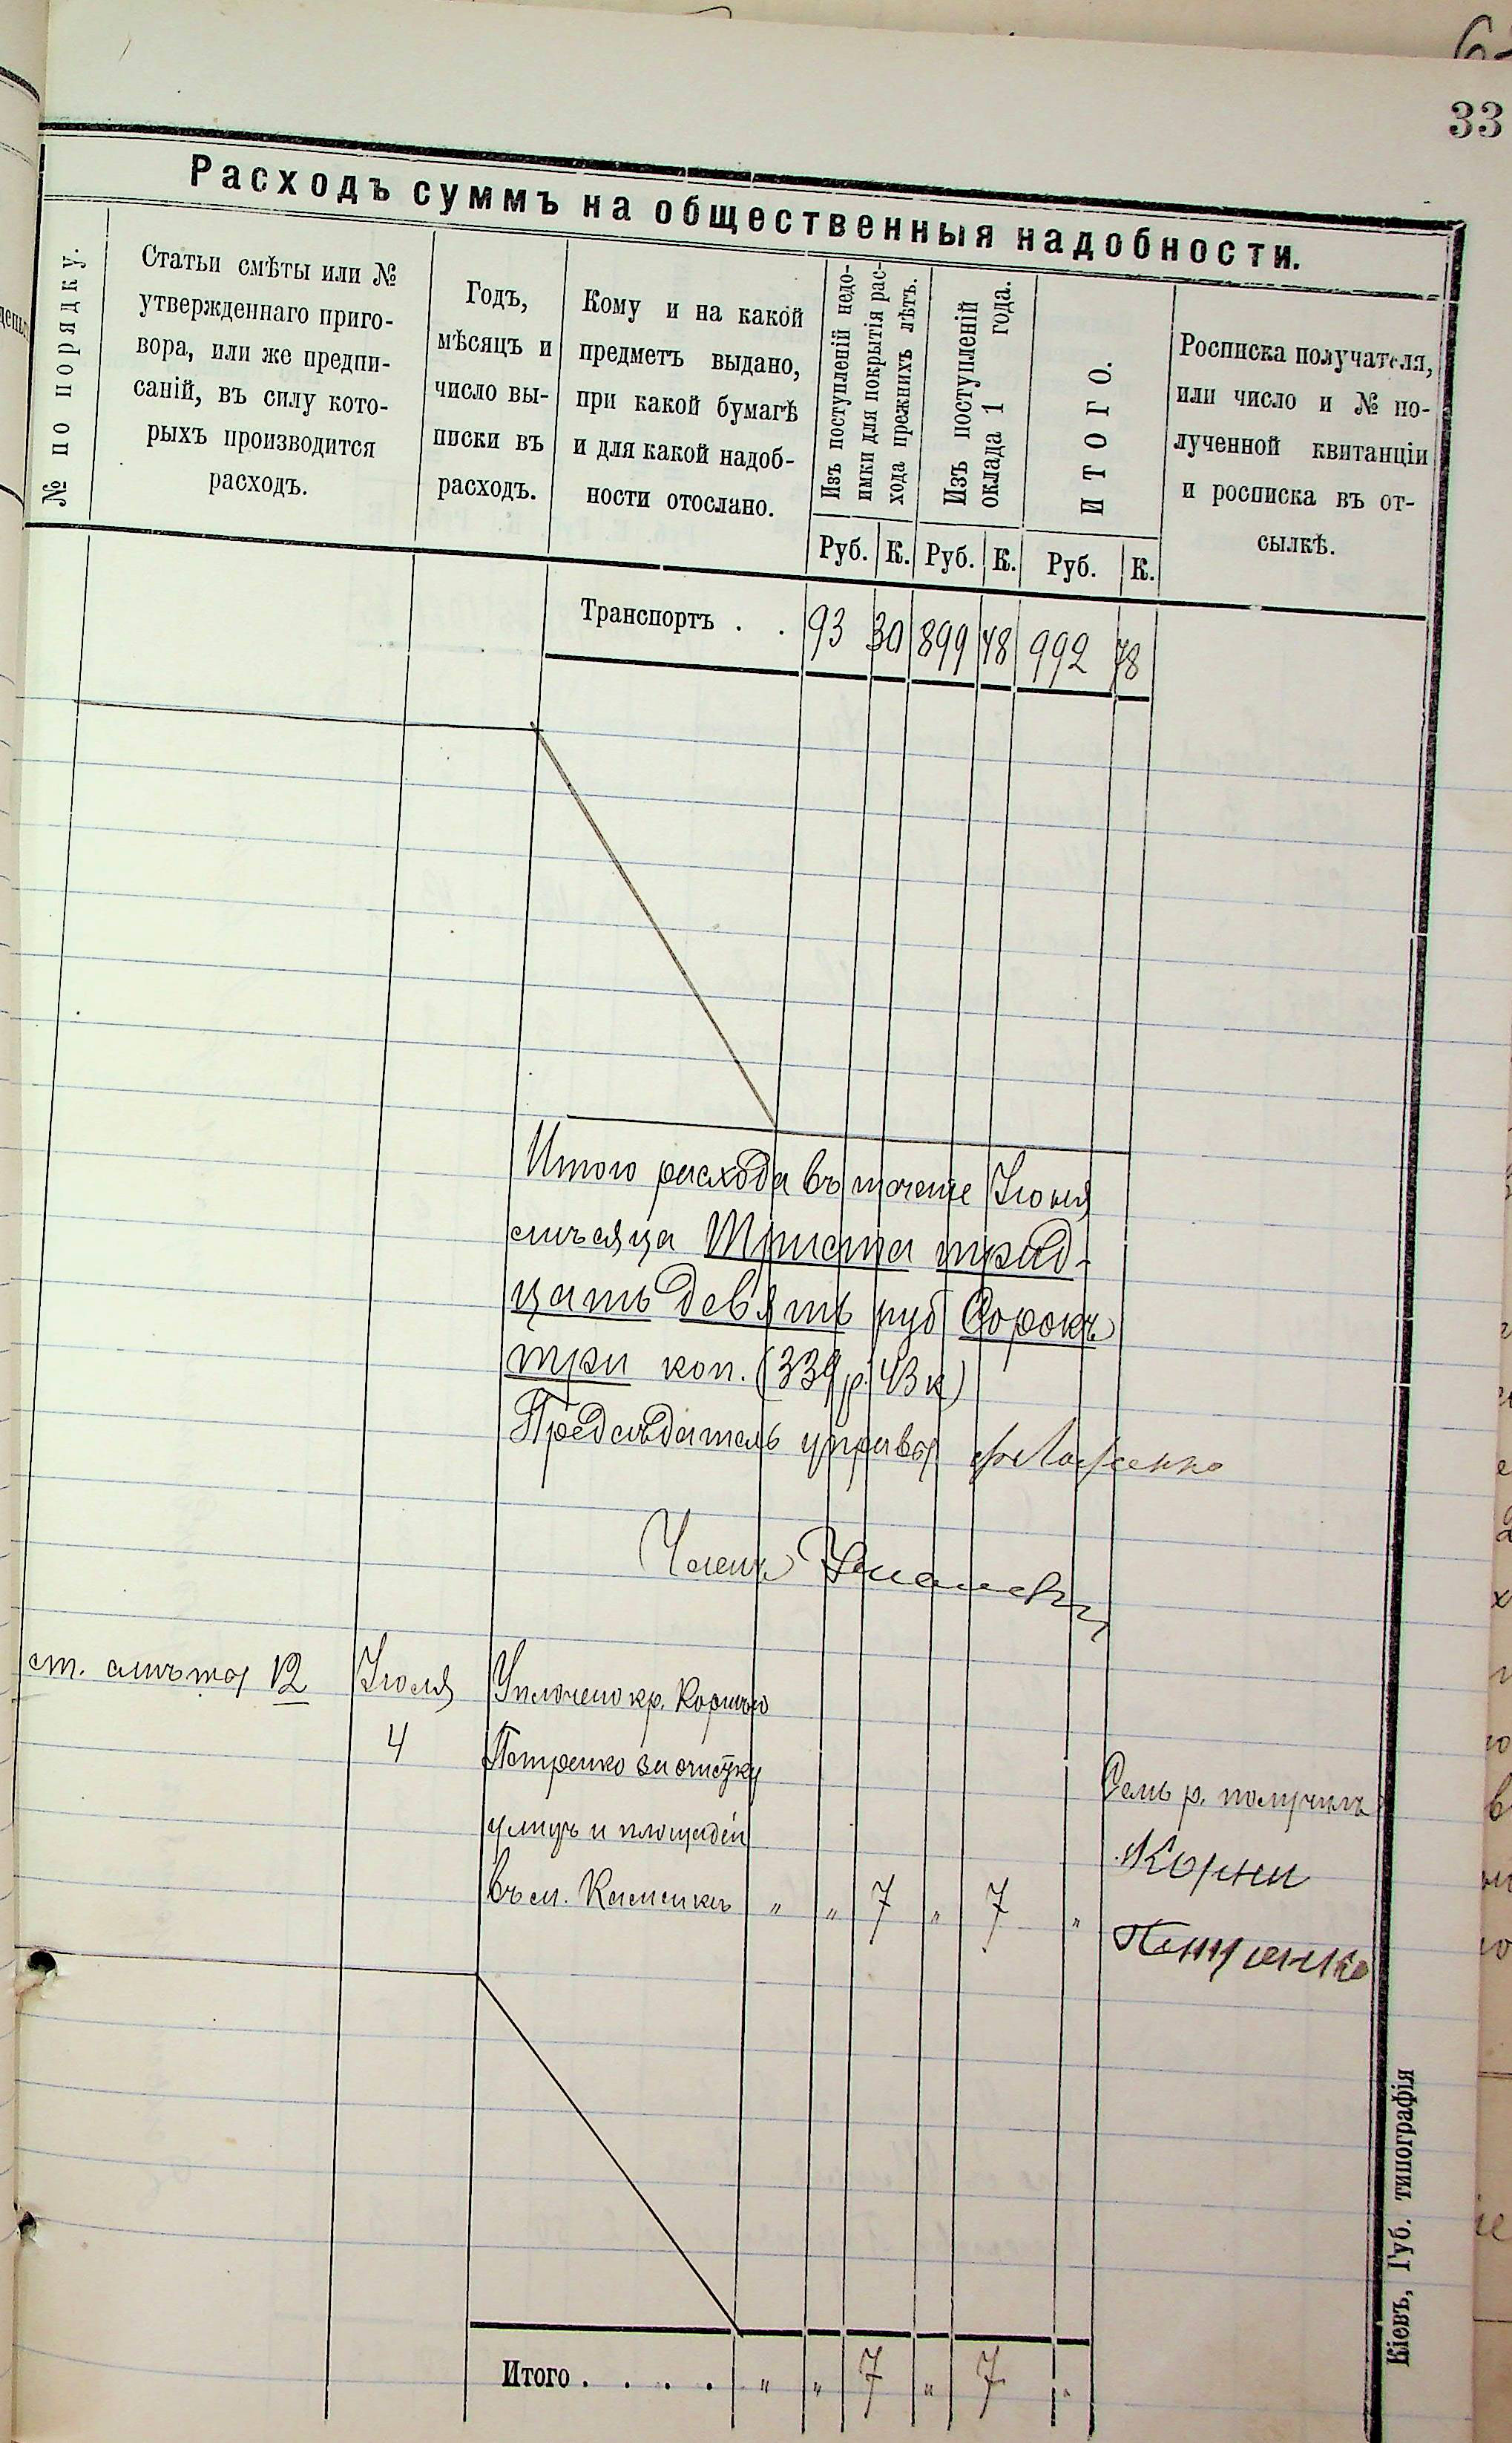 33
Расходъ суммъ на общественныя надобности.
№ по порядку.
Статьи смѣты или №
утвержденнаго приго-
вора, или же предпи-
саній, въ силу кото-
рыхъ производится
расходъ.
Годъ,
мѣсяцъ и
число вы-
писки въ
расходъ.
Кому и на какой
предметъ выдано,
при какой бумагѣ
и для какой надоб-
ности отослано.
Изъ поступленій недо-
имки для покрытія рас-
хода прежнихъ лѣтъ.
Изъ поступленій
оклада 1 года.
ИТОГО.
Росписка получателя,
или число и № по-
лученной квитанціи
и росписка въ от-
сылкѣ.
Руб. К. Руб. К. Руб. К.
Транспортъ . . 93 30 899 48 992 78
Итого расхода въ течение Іюня
мѣсяца Триста трид-
цать девять руб Сорокъ
три коп. (339 р. 43 к)
Предсѣдатель управы
Членъ
ст. смѣты 12 Іюля Уплочено кр. Корнѣю
4 Петренко за очистку
улицъ и площадей
въ м. Каменкѣ " " 7 " 7 "
Семь р. получилъ
Корни
Петренко
Итого . . . . " " 7 " 7 "
Кіевъ, Губ. типографія